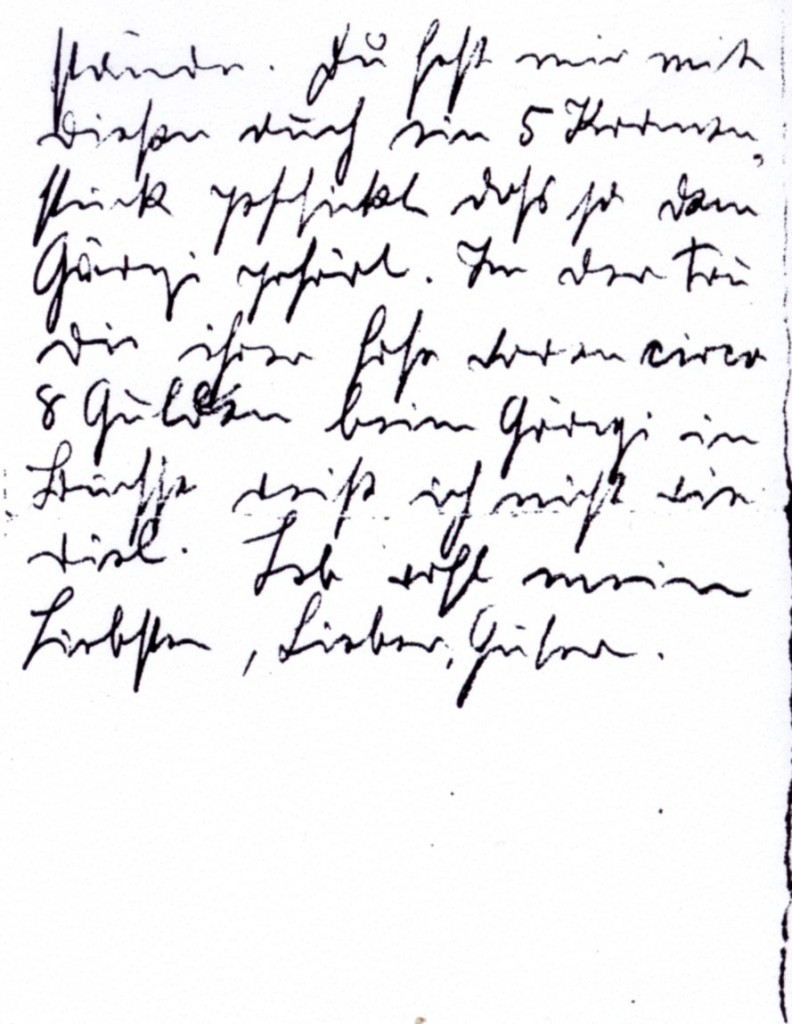 stände. Du hast mir mit
diesen auch ein 5 Kronen,
stück geschickt das ja dem
Görgi gehört. In der Tru
die ihrer Hose waren circa
8 Gulden beim Görgi in
weiß ich nicht wie
viel. Leb wohl mein
Liebster, Lieber, Guter.